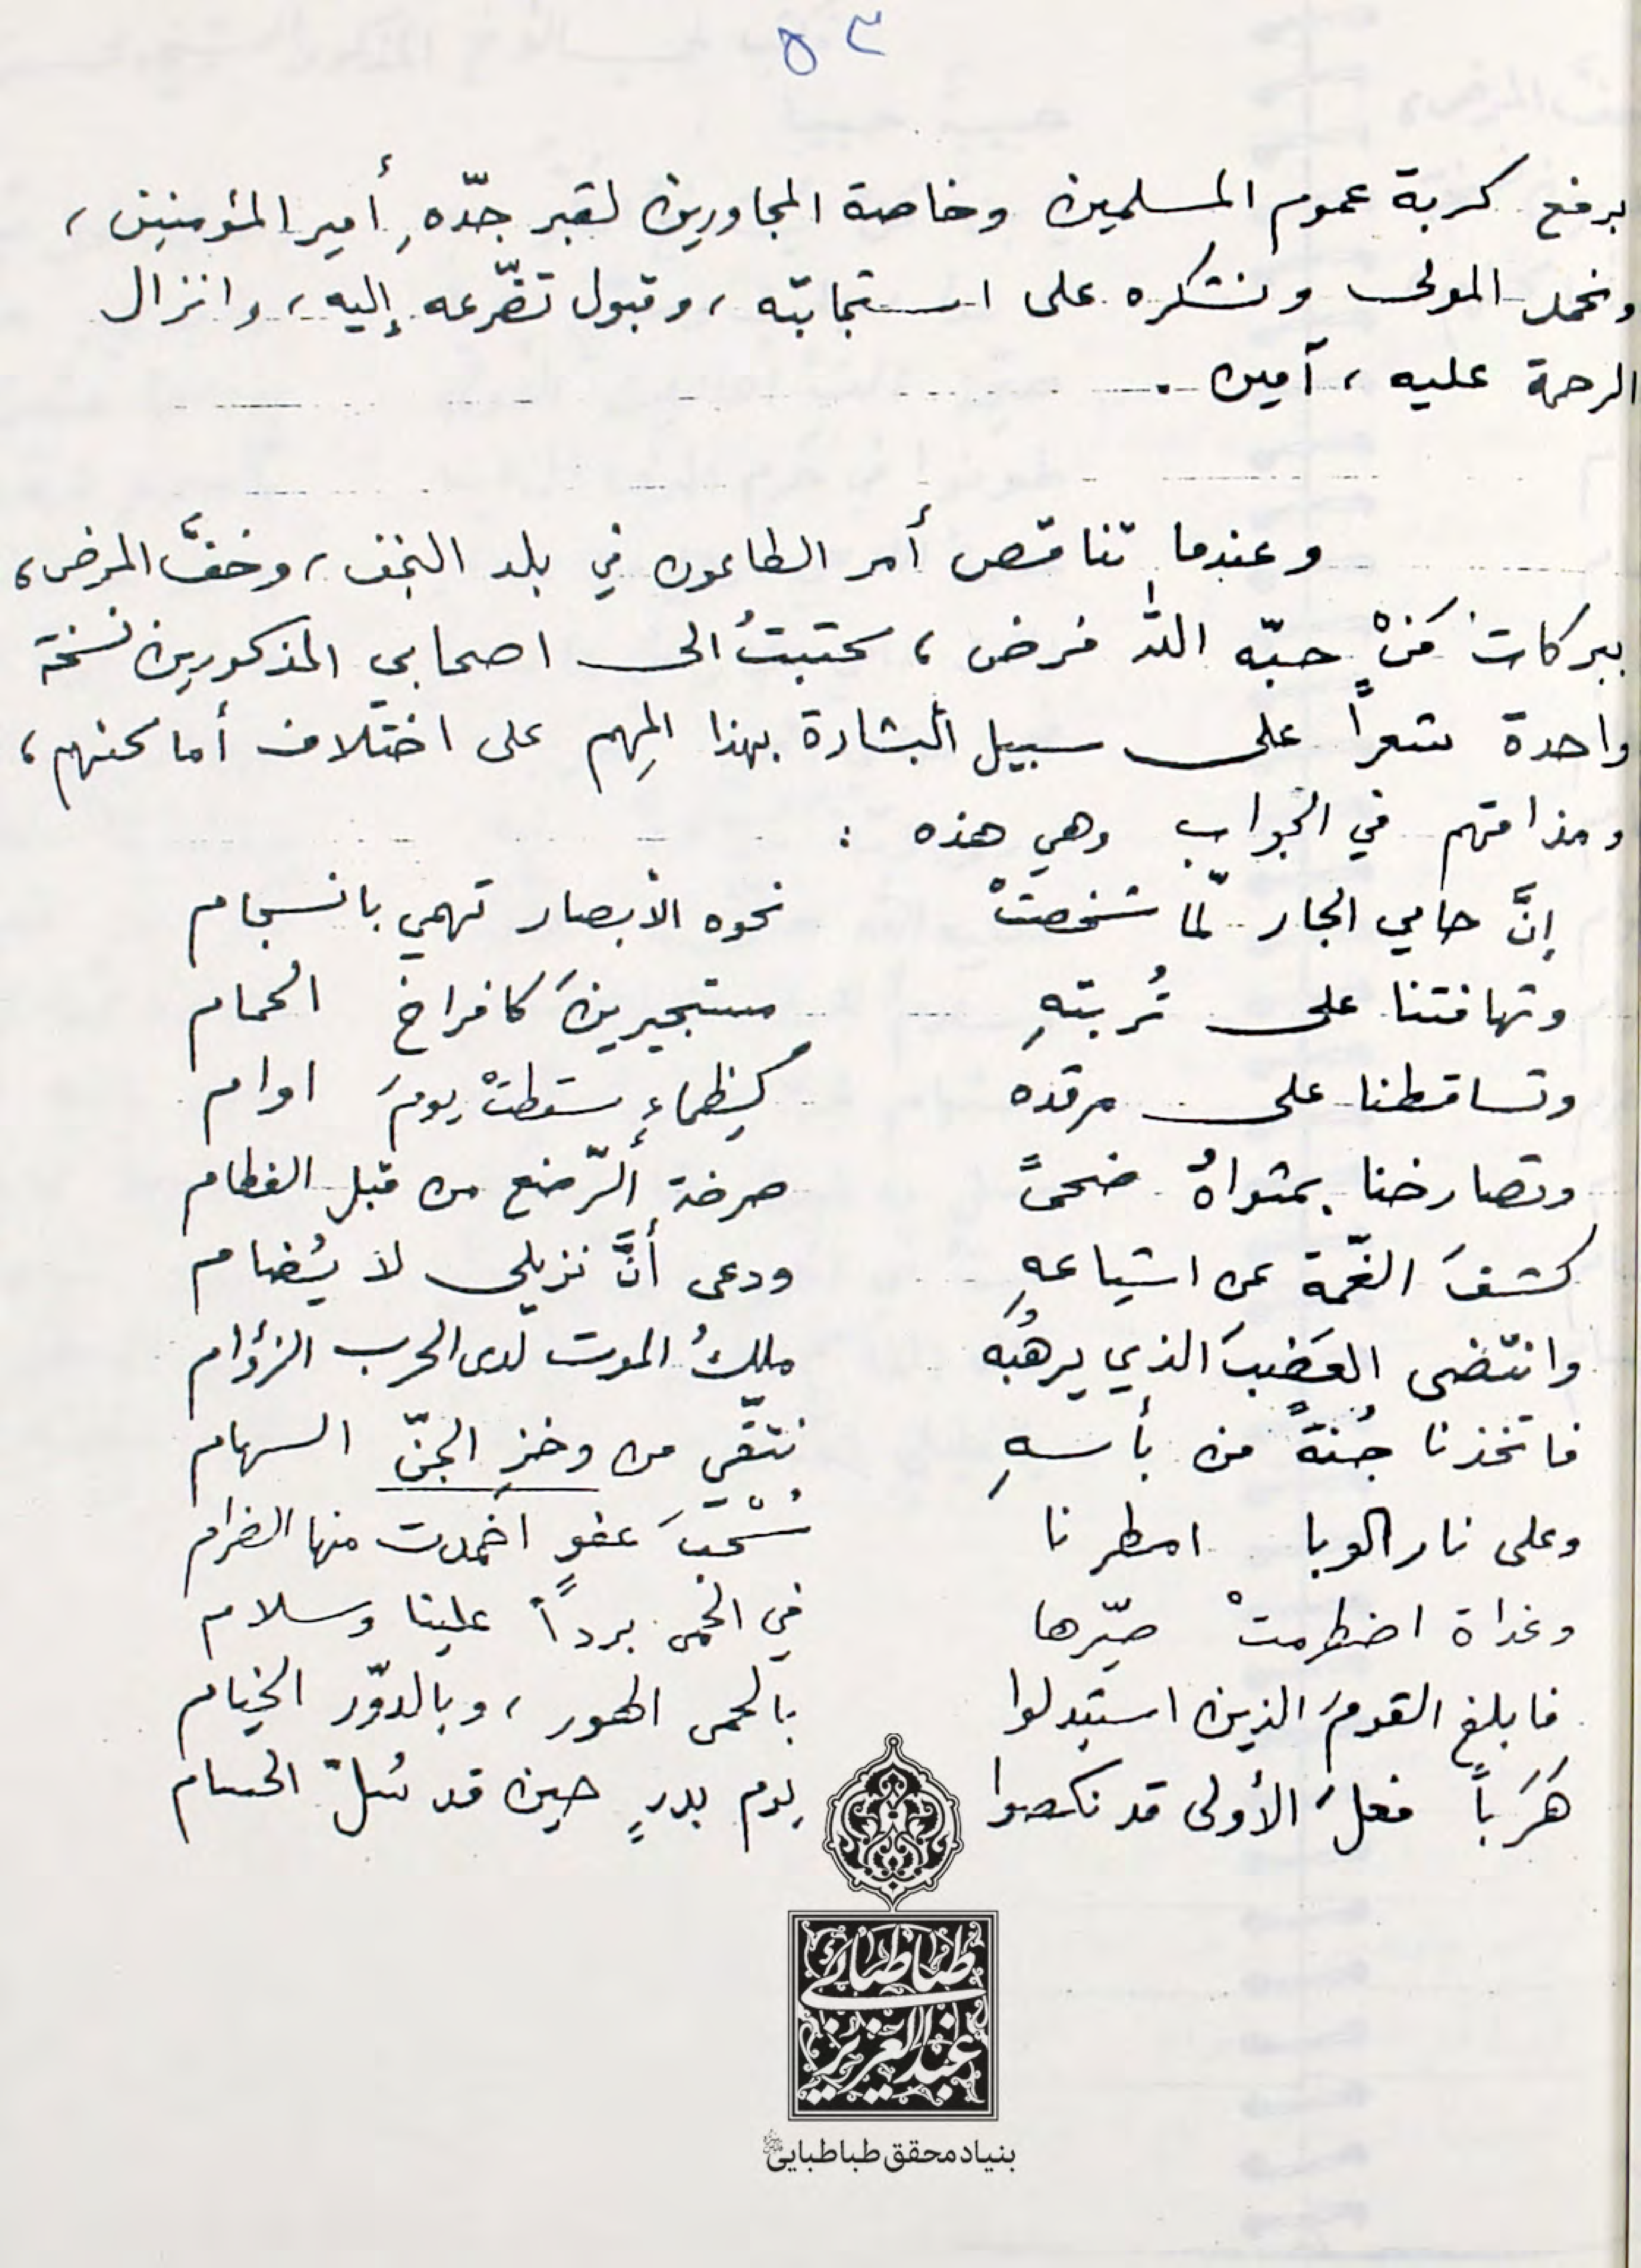 ٥٣
برفع كربة عموم المسلمين وخاصة المجاورين لقبر جدّهِ أمير المؤمنين ،
ونحمد المولى ونشكره على استجابته ، وقبول تضّرعه إليه ، وانزال
الرحمة عليه ، آمين .
وعندما تناقص أمر الطاعون في بلد النجف ، وخفَّ المرض ،
ببركات مَنْ حبّه الله فرض ، كتبتُ الى اصحابي المذكورين نسخة
واحدة شعراً على سبيل البشارة بهذا المهم على اختلاف أماكنهم ،
ومذاقهم في الجواب وهي هذه :
إنَّ حامي الجار لمّا شخصتْ نحوه الأبصار تهمي بانسجام
وتهافتنا على تُربتهِ مستجيرينَ كافراخ الحمام
وتساقطنا على مرقده كظماءٍ سقطتْ يومَ اوام
وتصارخنا بمثواهُ ضحىً صرخة ألرّضع من قبل الفطام
كشفَ الغمّة عن اشياعهِ ودعى أنَّ نزيلي لا يُضام
وانتضى العَضبَ الذي يرهبُه ملكُ الموت لدى الحرب الزؤام
فاتخذنا جُنةً من بأسهِ نتقّي من وخزِ الجنّ السهام
وعلى نار الوبا امطرنا سُحْبَ عفوٍ اخمدت منها الضرام
وغداة اضطرمتْ صيّرها في الحمى برداً علينا وسلام
فابلغ القومَ الذين استبدلوا بالحمى الطور ، وبالدوّر الخيام
هَرَباً فعلَ الأولى قد نكصوا يوم بدرٍ حين قد سُلّ الحسام
طباطبائي
عبدالعزيز
بنیاد محقق طباطبایی